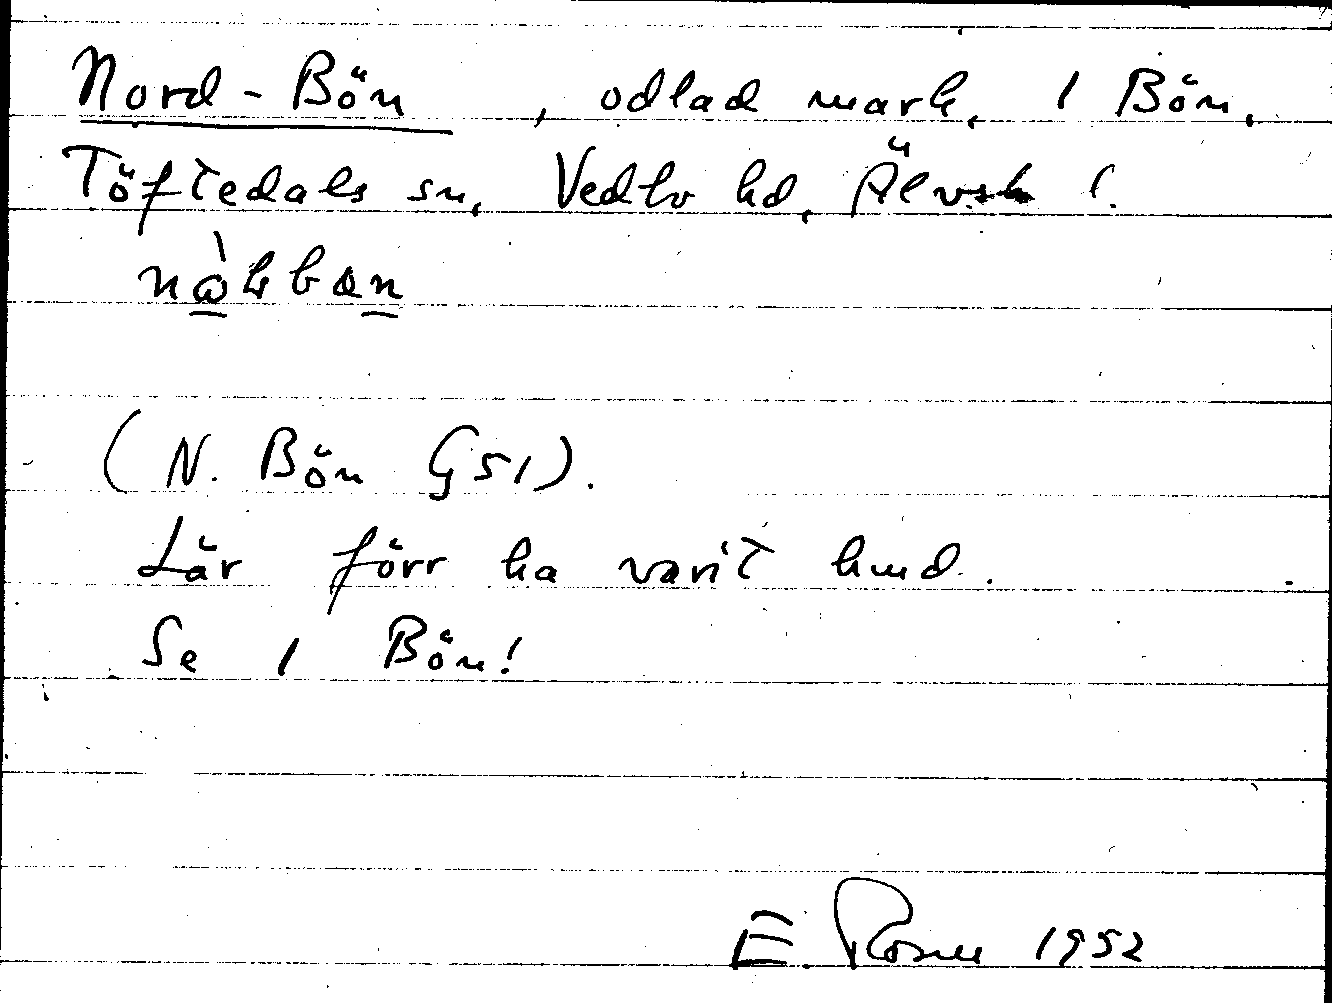 Nord-Bön, odlad mark, 1 Bön,
Töftedals sn, Vedbo hd, Älvsb l.
(N. Bön G51).
Lär förr ha varit hmd.
Se 1 Bön!
E. 1952